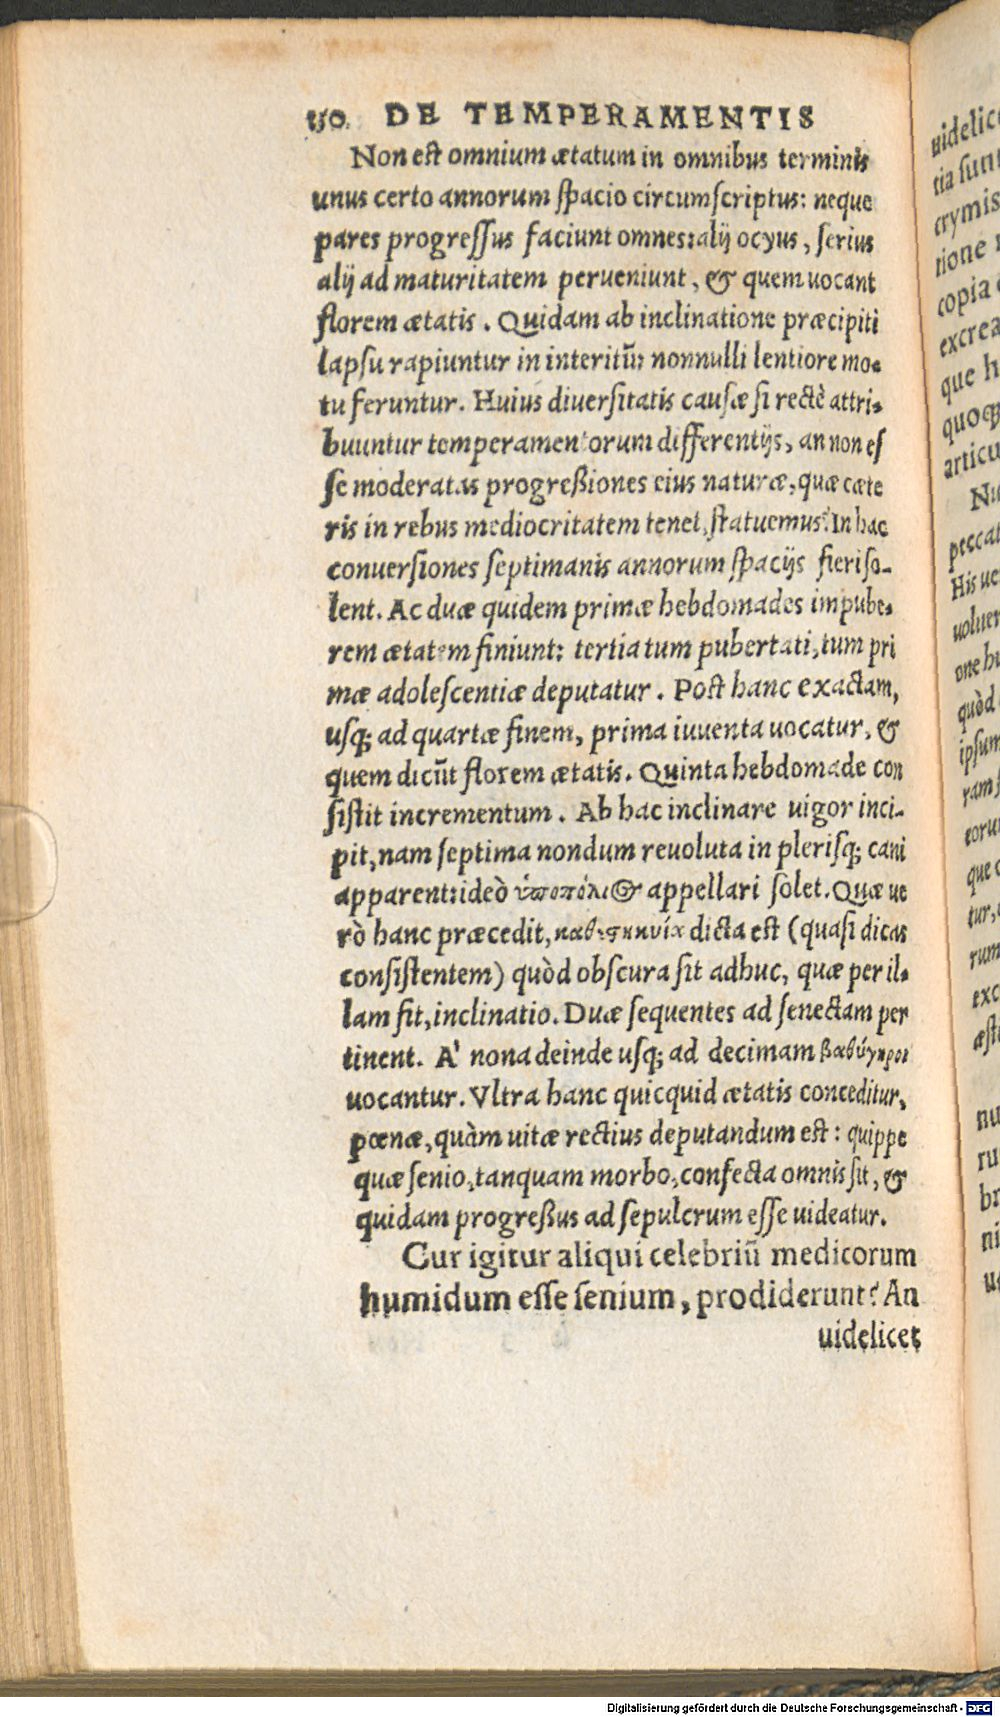 150 DE TEMPERAMENTIS
Non est omnium ætatum in omnibus terminis
unus certo annorum spacio circumscriptus: neque
pares progressus faciunt omnes: alij ocyus, serius
alij ad maturitatem perueniunt, & quem uocant
florem ætatis. Quidam ab inclinatione præcipiti
lapsu rapiuntur in interitũ: nonnulli lentiore mo-
tu feruntur. Huius diuersitatis causæ si rectè attri-
buuntur temperamentorum differentijs, an non es
se moderatas progreßiones eius naturæ, quæ cæte
ris in rebus mediocritatem tenet, statuemus? In hac
conuersiones septimanis annorum spacijs fieri so-
lent. Ac duæ quidem primæ hebdomades impube-
rem ætatem finiunt: tertia tum pubertati, tum pri
mæ adolescentiæ deputatur. Post hanc exactam,
usq; ad quartæ finem, prima iuuenta uocatur, &
quem dicũt florem ætatis. Quinta hebdomade con
sistit incrementum. Ab hac inclinare uigor inci-
pit, nam septima nondum reuoluta in plerisq; cani
apparent: ideò ὑποπόλιος appellari solet. Quæ ue
rò hanc præcedit, καθεστηκυῖα dicta est (quasi dicas
consistentem) quòd obscura sit adhuc, quæ per il-
lam fit, inclinatio. Duæ sequentes ad senectam per
tinent. A' nona deinde usq; ad decimam βαθύγηροι
uocantur. Vltra hanc quicquid ætatis conceditur,
pœnæ, quàm uitæ rectius deputandum est: quippe
quæ senio, tanquam morbo, confecta omnis sit, &
quidam progreßus ad sepulcrum esse uideatur.
Cur igitur aliqui celebriũ medicorum
humidum esse senium, prodiderunt? An
uidelicet
uidelice
tia sunt
crymis
tione
copia
excrea
que h
quoq;
articu
peccat
His ue
uoluer
one hu
quòd
ipsum
ram
toru
que
tur,
rum
exc
æst
nu
ru
br
ni
Digitalisierung gefördert durch die Deutsche Forschungsgemeinschaft - DFG